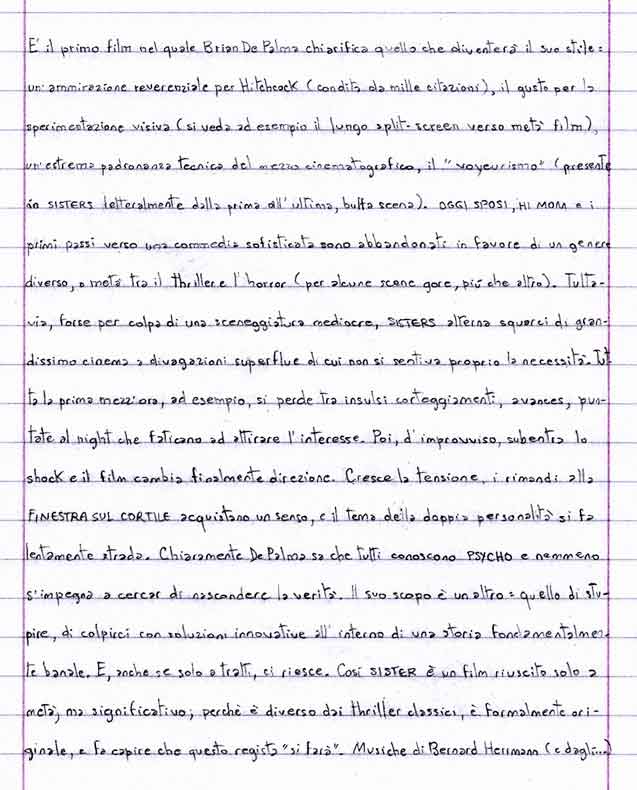 E' il primo film nel quale Brian De Palma chiarifica quello che diventerà il suo stile:
un'ammirazione reverenziale per Hitchcock (condita da mille citazioni), il gusto per la
sperimentazione visiva (si veda ad esempio il lungo split-screen verso metà film),
un'estrema padronanza tecnica del mezzo cinematografico, il "voyeurismo" (presente
in SISTERS letteralmente dalla prima all'ultima, buffa scena). OGGI SPOSI, HI MOM e i
primi passi verso una commedia sofisticata sono abbandonati in favore di un genere
diverso, a metà tra il thriller e l'horror (per alcune scene gore, più che altro). Tutta-
via, forse per colpa di una sceneggiatura mediocre, SISTERS alterna squarci di gran-
dissimo cinema a divagazioni superflue di cui non si sentiva proprio la necessità. Tut
ta la prima mezz'ora, ad esempio, si perde tra insulsi corteggiamenti, avances, pun-
tate al night che faticano ad attirare l'interesse. Poi, d'improvviso, subentra lo
shock e il film cambia finalmente direzione. Cresce la tensione, i rimandi alla
FINESTRA SUL CORTILE acquistano un senso, e il tema della doppia personalità si fa
lentamente strada. Chiaramente De Palma sa che tutti conoscono PSYCHO e nemmeno
s'impegna a cercar di nascondere la verità. Il suo scopo è un altro: quello di stu-
pire, di colpirci con soluzioni innovative all'interno di una storia fondamentalmen-
te banale. E, anche se solo a tratti, ci riesce. Così SISTER è un film riuscito solo a
metà, ma significativo; perchè è diverso dai thriller classici, è formalmente ori-
ginale, e fa capire che questo regista "si farà". Musiche di Bernard Herrmann (e dagli...)